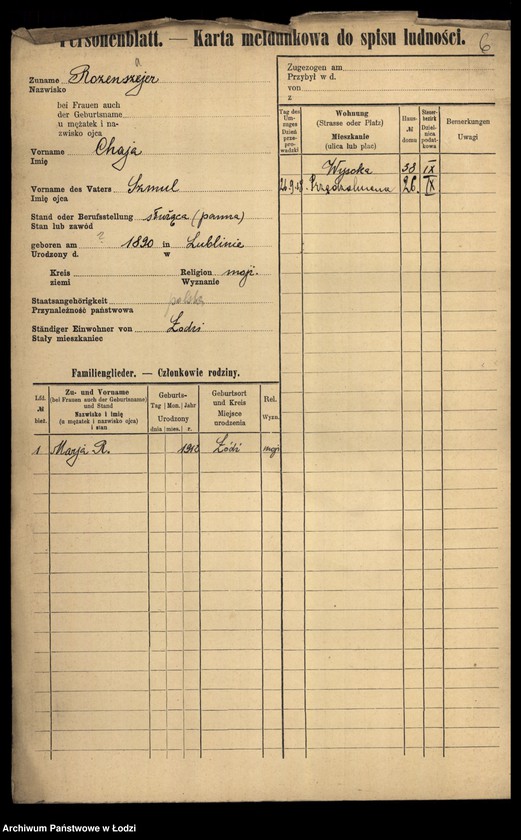 Personenblatt. — Karta meldunkowa do spisu ludności.
6
Zuname Rozenszejer
Nazwisko
bei Frauen auch
der Geburtsname
u mężatek i na-
zwisko ojca
Vorname Chaja
Imię
Vorname des Vaters Szmul
Imię ojca
Stand oder Berufsstellung służąca (panna)
Stan lub zawód
geboren am ? 1890 in Lublinie
Urodzony d. w
Kreis Religion mojż.
ziemi Wyznanie
Staatsangehörigkeit polska
Przynależność państwowa
Ständiger Einwohner von Łodzi
Stały mieszkaniec
Zugezogen am
Przybył w d.
von
z
Tag des Um-zuges Dzień prze-prowadzki
Wohnung
(Strasse oder Platz)
Mieszkanie
(ulica lub plac)
Haus- № domu
Steuer-bezirk Dzielnica podatkowa
Bemerkungen
Uwagi
Wysoka 38 IX
26. IX
Familienglieder. — Członkowie rodziny.
Lfd. № bież.
Zu- und Vorname
(bei Frauen auch der Geburtsname)
und Stand
Nazwisko i imię
(u mężatek i nazwisko ojca)
i stan
Geburts-
Tag | Mon. | Jahr
Urodzony
dnia | mies. | r.
Geburtsort
und Kreis
Miejsce
urodzenia
Rel.
Wyzn.
1 Marja R. 1918 Łódź mojż
Archiwum Państwowe w Łodzi